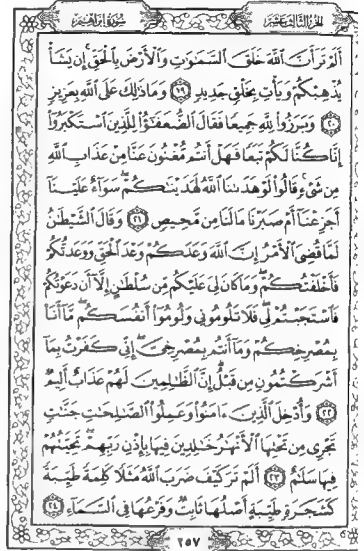 الجزء الثالث عشر
سورة إبراهيم
أَلَمْ تَرَ أَنَّ ٱللَّهَ خَلَقَ ٱلسَّمَٰوَٰتِ وَٱلْأَرْضَ بِٱلْحَقِّ ۚ إِن يَشَأْ
يُذْهِبْكُمْ وَيَأْتِ بِخَلْقٍ جَدِيدٍ ١٩ وَمَا ذَٰلِكَ عَلَى ٱللَّهِ بِعَزِيزٍ
٢٠ وَبَرَزُوا۟ لِلَّهِ جَمِيعًا فَقَالَ ٱلضُّعَفَٰٓؤُا۟ لِلَّذِينَ ٱسْتَكْبَرُوٓا۟
إِنَّا كُنَّا لَكُمْ تَبَعًا فَهَلْ أَنتُم مُّغْنُونَ عَنَّا مِنْ عَذَابِ ٱللَّهِ
مِن شَىْءٍ ۚ قَالُوا۟ لَوْ هَدَىٰنَا ٱللَّهُ لَهَدَيْنَٰكُمْ ۖ سَوَآءٌ عَلَيْنَآ
أَجَزِعْنَآ أَمْ صَبَرْنَا مَا لَنَا مِن مَّحِيصٍ ٢١ وَقَالَ ٱلشَّيْطَٰنُ
لَمَّا قُضِىَ ٱلْأَمْرُ إِنَّ ٱللَّهَ وَعَدَكُمْ وَعْدَ ٱلْحَقِّ وَوَعَدتُّكُمْ
فَأَخْلَفْتُكُمْ ۖ وَمَا كَانَ لِىَ عَلَيْكُم مِّن سُلْطَٰنٍ إِلَّآ أَن دَعَوْتُكُمْ
فَٱسْتَجَبْتُمْ لِى ۖ فَلَا تَلُومُونِى وَلُومُوٓا۟ أَنفُسَكُم ۖ مَّآ أَنَا۠
بِمُصْرِخِكُمْ وَمَآ أَنتُم بِمُصْرِخِىَّ ۖ إِنِّى كَفَرْتُ بِمَآ
أَشْرَكْتُمُونِ مِن قَبْلُ ۗ إِنَّ ٱلظَّٰلِمِينَ لَهُمْ عَذَابٌ أَلِيمٌ
٢٢ وَأُدْخِلَ ٱلَّذِينَ ءَامَنُوا۟ وَعَمِلُوا۟ ٱلصَّٰلِحَٰتِ جَنَّٰتٍ
تَجْرِى مِن تَحْتِهَا ٱلْأَنْهَٰرُ خَٰلِدِينَ فِيهَا بِإِذْنِ رَبِّهِمْ ۖ تَحِيَّتُهُمْ
فِيهَا سَلَٰمٌ ٢٣ أَلَمْ تَرَ كَيْفَ ضَرَبَ ٱللَّهُ مَثَلًا كَلِمَةً طَيِّبَةً
كَشَجَرَةٍ طَيِّبَةٍ أَصْلُهَا ثَابِتٌ وَفَرْعُهَا فِى ٱلسَّمَآءِ ٢٤
٢٥٧